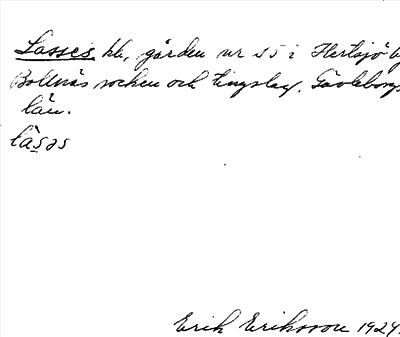 Lasses hb, gården nr 15 i Hertsjö by
Bollnäs socken och tingslag, Gävleborgs
län.
lȧsəs
Erik Eriksson 1924.